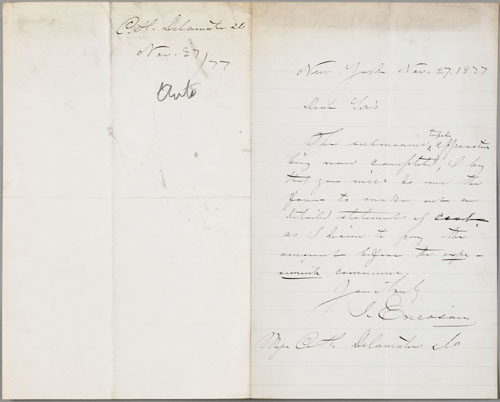 C. H. Delamater &Co
Nov. 27/77
New York Nov. 27, 1877
Dear Sirs
The submarine torpedo apparatus
being now completed, I beg
that you will do me the
favor to make out a
detailed statement of cost,
as I desire to pay the
amount before the expe-
riments commence.
Yours truly
J. Ericsson
Messrs C. H. Delamater &Co